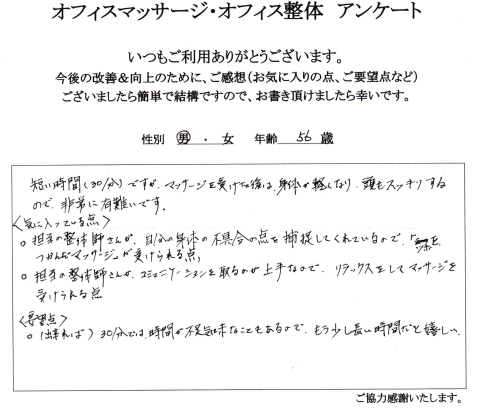 オフィスマッサージ・オフィス整体 アンケート
いつもご利用ありがとうございます。
今後の改善&向上のために、ご感想(お気に入りの点、ご要望点など)
ございましたら簡単で結構ですので、お書き頂けましたら幸いです。
性別 男 ・ 女 年齢 56 歳
短い時間(30分)ですが、マッサージを受けた後は、身体が軽くなり、頭もスッキリする
ので、非常に有難いです。
<気に入っている点>
○ 担当の整体師さんが、自分の身体の不具合の点を捕捉してくれているので、「
つかんだマッサージ」が受けられる点。
○ 担当の整体師さんが、コミュニケーションを取るのが上手なので、リラックスをしてマッサージを
受けられる点
<要望点>
○ (出来れば) 30分では、時間が不足気味なこともあるので、もう少し長い時間だと嬉しい。
ご協力感謝いたします。